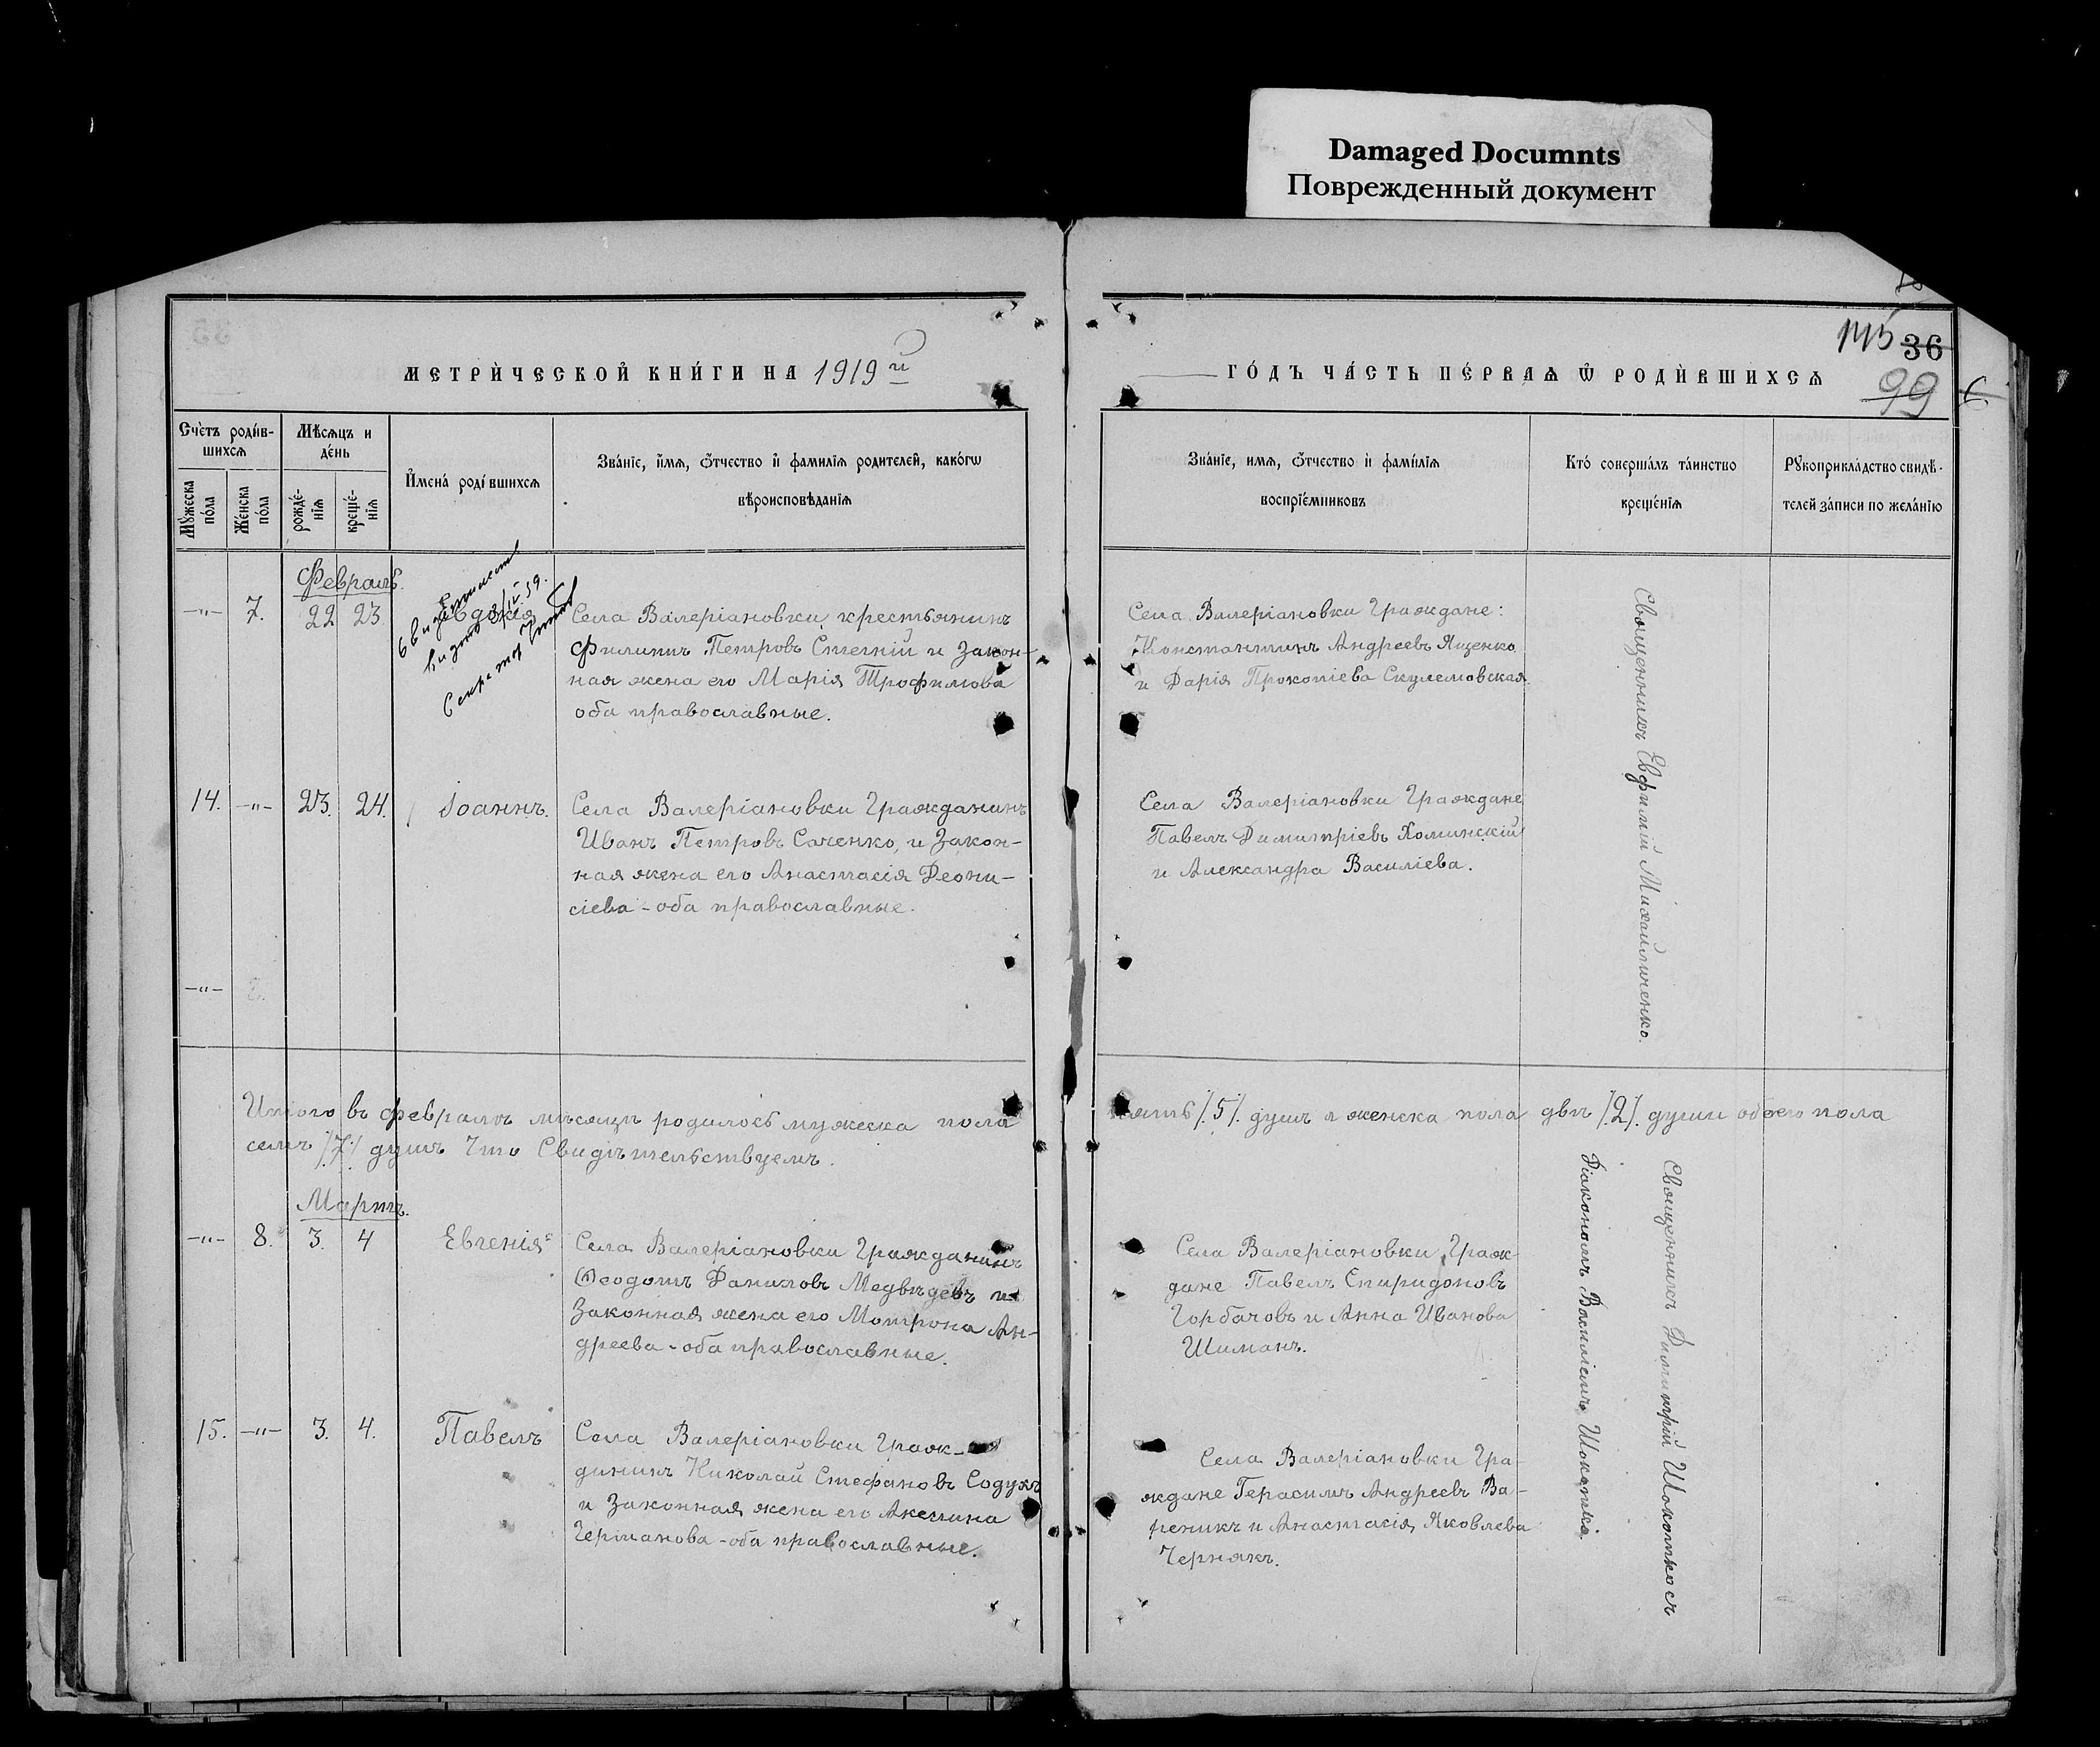 Damaged Documnts
Поврежденный документ
МЕТРИ́ЧЕСКОЙ КНИ́ГИ НА 1919й
ГО́ДЪ ЧА́СТЬ ПЕ́РВАѦ Ѿ РОДИ́ВШИХСѦ
145 36
99
Сче́тъ роди́в-
шихсѧ
Мѣсѧцъ и
де́нь
Мꙋ́жеска
по́ла
Же́нска
по́ла
рожде́-
нїѧ
креще́-
нїѧ
И҆мена̀ роди́вшихсѧ
Зва́нїе, и҆́мѧ, ѻ҆́тчество и҆ фамилїѧ родителей, како́гѡ
вѣроисповѣданїѧ
Зва́нїе, имѧ, ѻ҆́тчество и҆ фами́лїѧ
воспрїе́мниковъ
Кто́ соверша́лъ та́инство
креще́нїѧ
Рꙋкоприкла́дство свидѣ-
телей за́писи по жела́нїю
Февраль
-"- 7. 22 23 Евдокія
Села Валеріановки, крестьянинъ
Филиппъ Петровъ и Закон-
ная жена его Марія Трофимова
оба православные.
Села Валеріановки Граждане:
Константинъ Андреевъ Яценко
и Дарія Прокопіева Скулемовская
Священникъ Евфимій Михайличенко.
14. -"- 23. 24. Іоаннъ.
Села Валеріановки Гражданинъ
Иванъ Петровъ Саченко, и Закон-
ная жена его Анастасія Деони-
сіева - оба православные.
Села Валеріановки Граждане
Павелъ Димитріевъ Хоминскій
и Александра Василіева.
-"- 8.
Итого въ февралѣ мѣсяцѣ родилось мужеска пола
пять /5/ душъ и женска пола двѣ /2/ души обоего пола
семь /7/ душъ Что Свидѣтельствуемъ.
Мартъ.
-"- 8. 3. 4 Евгенія
Села Валеріановки Гражданинъ
Ѳеодотъ Даниловъ Медвѣдевъ и
Законная жена его Матрона Ан-
дреева - оба православные.
Села Валеріановки Граж-
дане Павелъ Спиридоновъ
Горбачовъ и Анна Иванова
Шиманъ.
Священникъ Димитрій Шокотко съ
Діакономъ Василіемъ Шокотко.
15. -"- 3. 4. Павелъ
Села Валеріановки Граж-
данинъ Николай Стефановъ Содухъ
и Законная жена его Акелина
Германова - оба православные.
Села Валеріановки Гра-
ждане Герасимъ Андреевъ Ва-
реникъ и Анастасія Яковлева
Чернякъ.